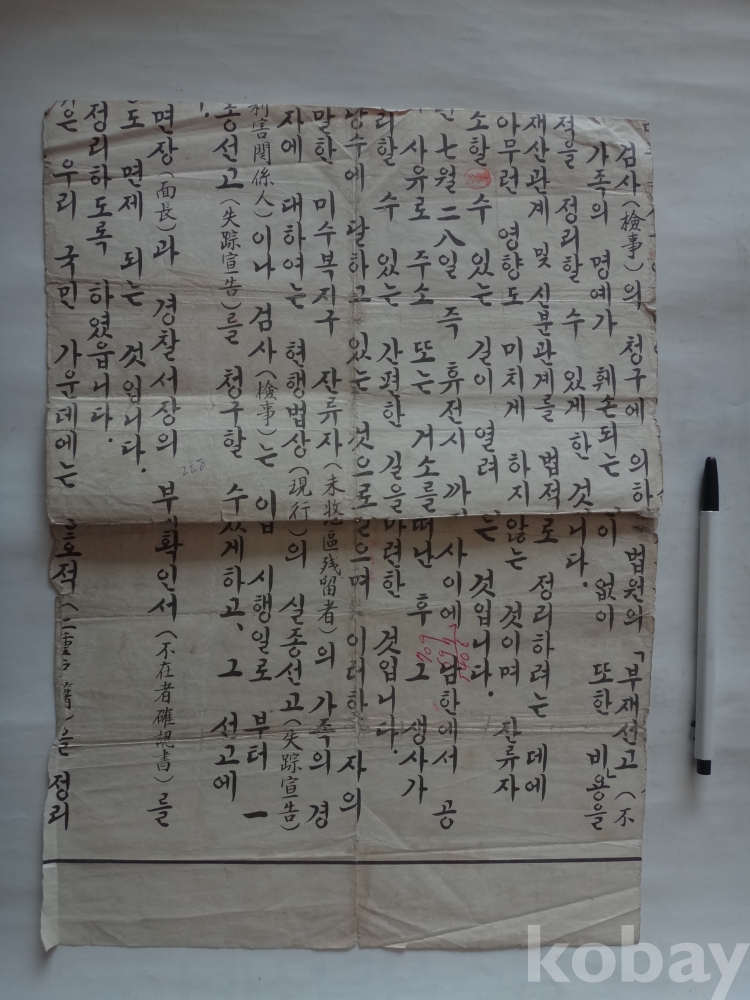 검사(檢事)의 청구에 의하 법원의 「부재선고(不
가족의 명예가 훼손되는 이 없이 또한 비용을
적을 정리할 수 있게한 것니다.
재산관계 및 신분관계를 법적로 정리하려는 데에
아무런 영향도 미치게 하지않는 것이며 잔류자
소할 수 있는 길이 열려 는 것입니다.
七월 二八일 즉 휴전시 까 사이에 남한에서 공
사유로 주소 또는 거소를떠난 후 그 생사가
리할 수 있는 간편한 길을마련한 것입니다.
상수에 달하고 있는 것으로 으며 이러하 자의
말한 미수복지구 잔류자(未收區残留者)의 가족의 경
자에 대하여는 현행법상(現行)의 실종선고(失踪宣告)
利害關係人)이나 검사(檢事)는 이법 시행일로 부터 一
종선고(失踪宣告)를 청구할 수있게하고, 그 선고에
면장(面長)과 경찰서장의 부확인서(不在者確認書)를
도 면제 되는 것입니다.
정리하도록 하였읍니다.
은 우리 국민 가운데에는 호적(重籍)을 정리
kobay